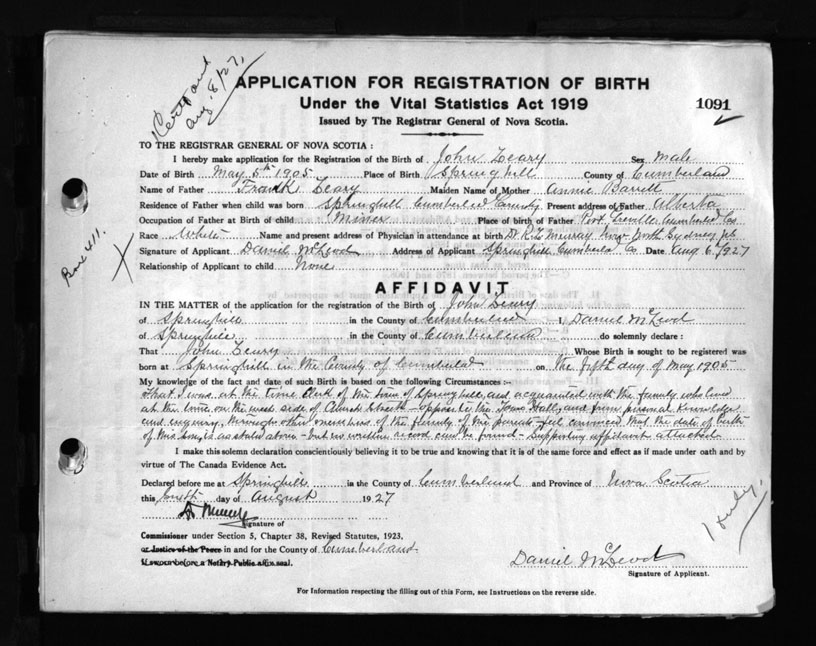 Cert and
Aug. 8/27.
APPLICATION FOR REGISTRATION OF BIRTH
Under the Vital Statistics Act 1919
1091
Issued by The Registrar General of Nova Scotia.
TO THE REGISTRAR GENERAL OF NOVA SCOTIA:
I hereby make application for the Registration of the Birth of John Leary Sex Male
Date of Birth May 5th 1905 Place of Birth Springhill County of Cumberland
Name of Father Frank Leary Maiden Name of Mother Annie Barrett
Residence of Father when child was born Springhill Cumberland County Present address of Father Alberta
Occupation of Father at Birth of child Miner Place of birth of Father Port Greville Cumberland Co
Race White Name and present address of Physician in attendance at birth Dr. Murray now North Sydney
Signature of Applicant Daniel McLeod Address of Applicant Springhill Cumberland Co Date Aug 6th/927
Relationship of Applicant to child None
Box 411.
X
AFFIDAVIT
IN THE MATTER of the application for the registration of the Birth of John Leary
of Springhill in the County of Cumberland I Daniel McLeod
of Springhill in the County of Cumberland do solemnly declare :
That John Leary Whose Birth is sought to be registered was
born at Springhill in the County of Cumberland on the fifth day of May 1905
My knowledge of the fact and date of such Birth is based on the following Circumstances :-
that I was at the time Clerk of the Town of Springhill, and acquainted with the family who lived
at the time on the west side of Church Street - opposite the Town Hall, and from personal knowledge
and enquiry, through other members of the family of the parents, feel convinced that the date of birth
of this Son, is as stated above - but no written record can be found - Supporting affidavit attached
I make this solemn declaration conscientiously believing it to be true and knowing that it is of the same force and effect as if made under oath and by
virtue of The Canada Evidence Act.
Declared before me at Springhill in the County of Cumberland and Province of Nova Scotia
this day of August 1927
Signature of
Commissioner under Section 5, Chapter 38, Revised Statutes, 1923,
or Justice of the Peace in and for the County of Cumberland
if sworn before a Notary Public affix seal.
Daniel McLeod
Signature of Applicant.
For Information respecting the filling out of this Form, see Instructions on the reverse side.